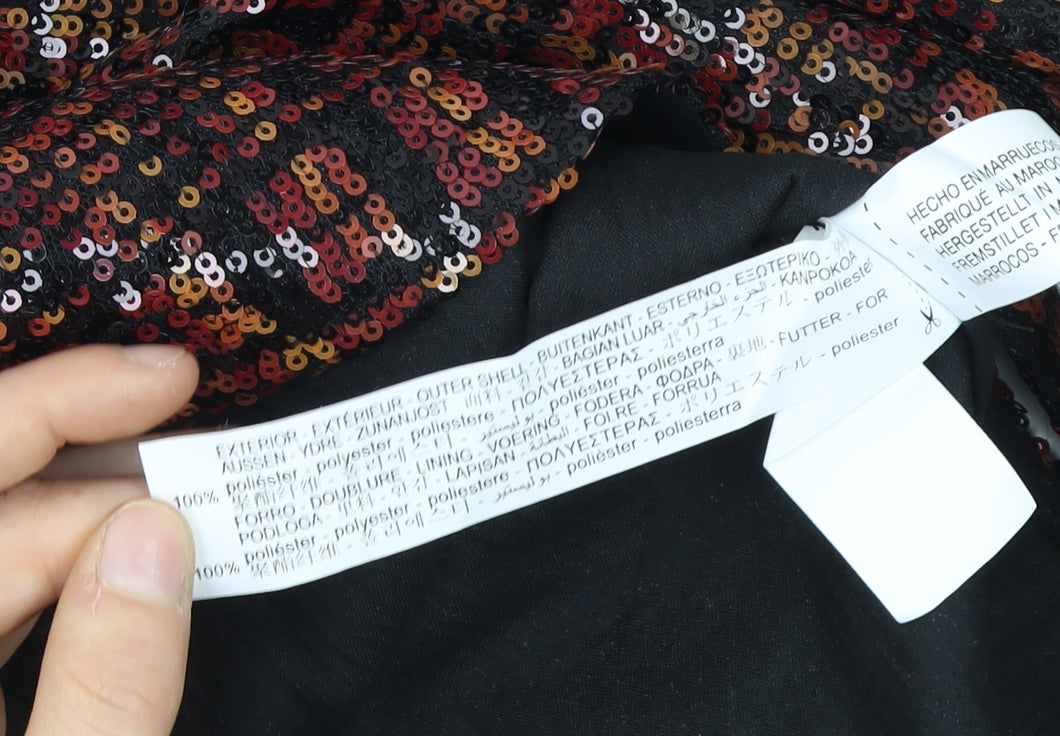 HECHO EN MARRUECOS
FABRIQUÉ AU MAROC
HERGESTELLT IN
FREMSTILLET I
MARROCOS -
EXTERIOR - EXTÉRIEUR - OUTER SHELL - BUITENKANT - ESTERNO - ΕΞΩΤΕΡΙΚΟ -
AUSSEN - YDRE - ZUNANJOST - 面料 - 겉감 - BAGIAN LUAR - الجزء الخارجي - KANPOKOA
100% poliéster - polyester - poliestere - ΠΟΛΥΕΣΤΕΡΑΣ - ポリエステル - poliester
聚酯纤维 - 폴리에스터 - بوليستير - poliéster - poliesterra
FORRO - DOUBLURE - LINING - VOERING - FODERA - ΦΟΔΡΑ - 裏地 - FUTTER - FOR
PODLOGA - 里料 - 안감 - LAPISAN - البطانة - FOLRE - FORRUA
100% poliéster - polyester - poliestere - ΠΟΛΥΕΣΤΕΡΑΣ - ポリエステル - poliester
聚酯纤维 - 폴리에스터 - بوليستير - poliéster - poliesterra